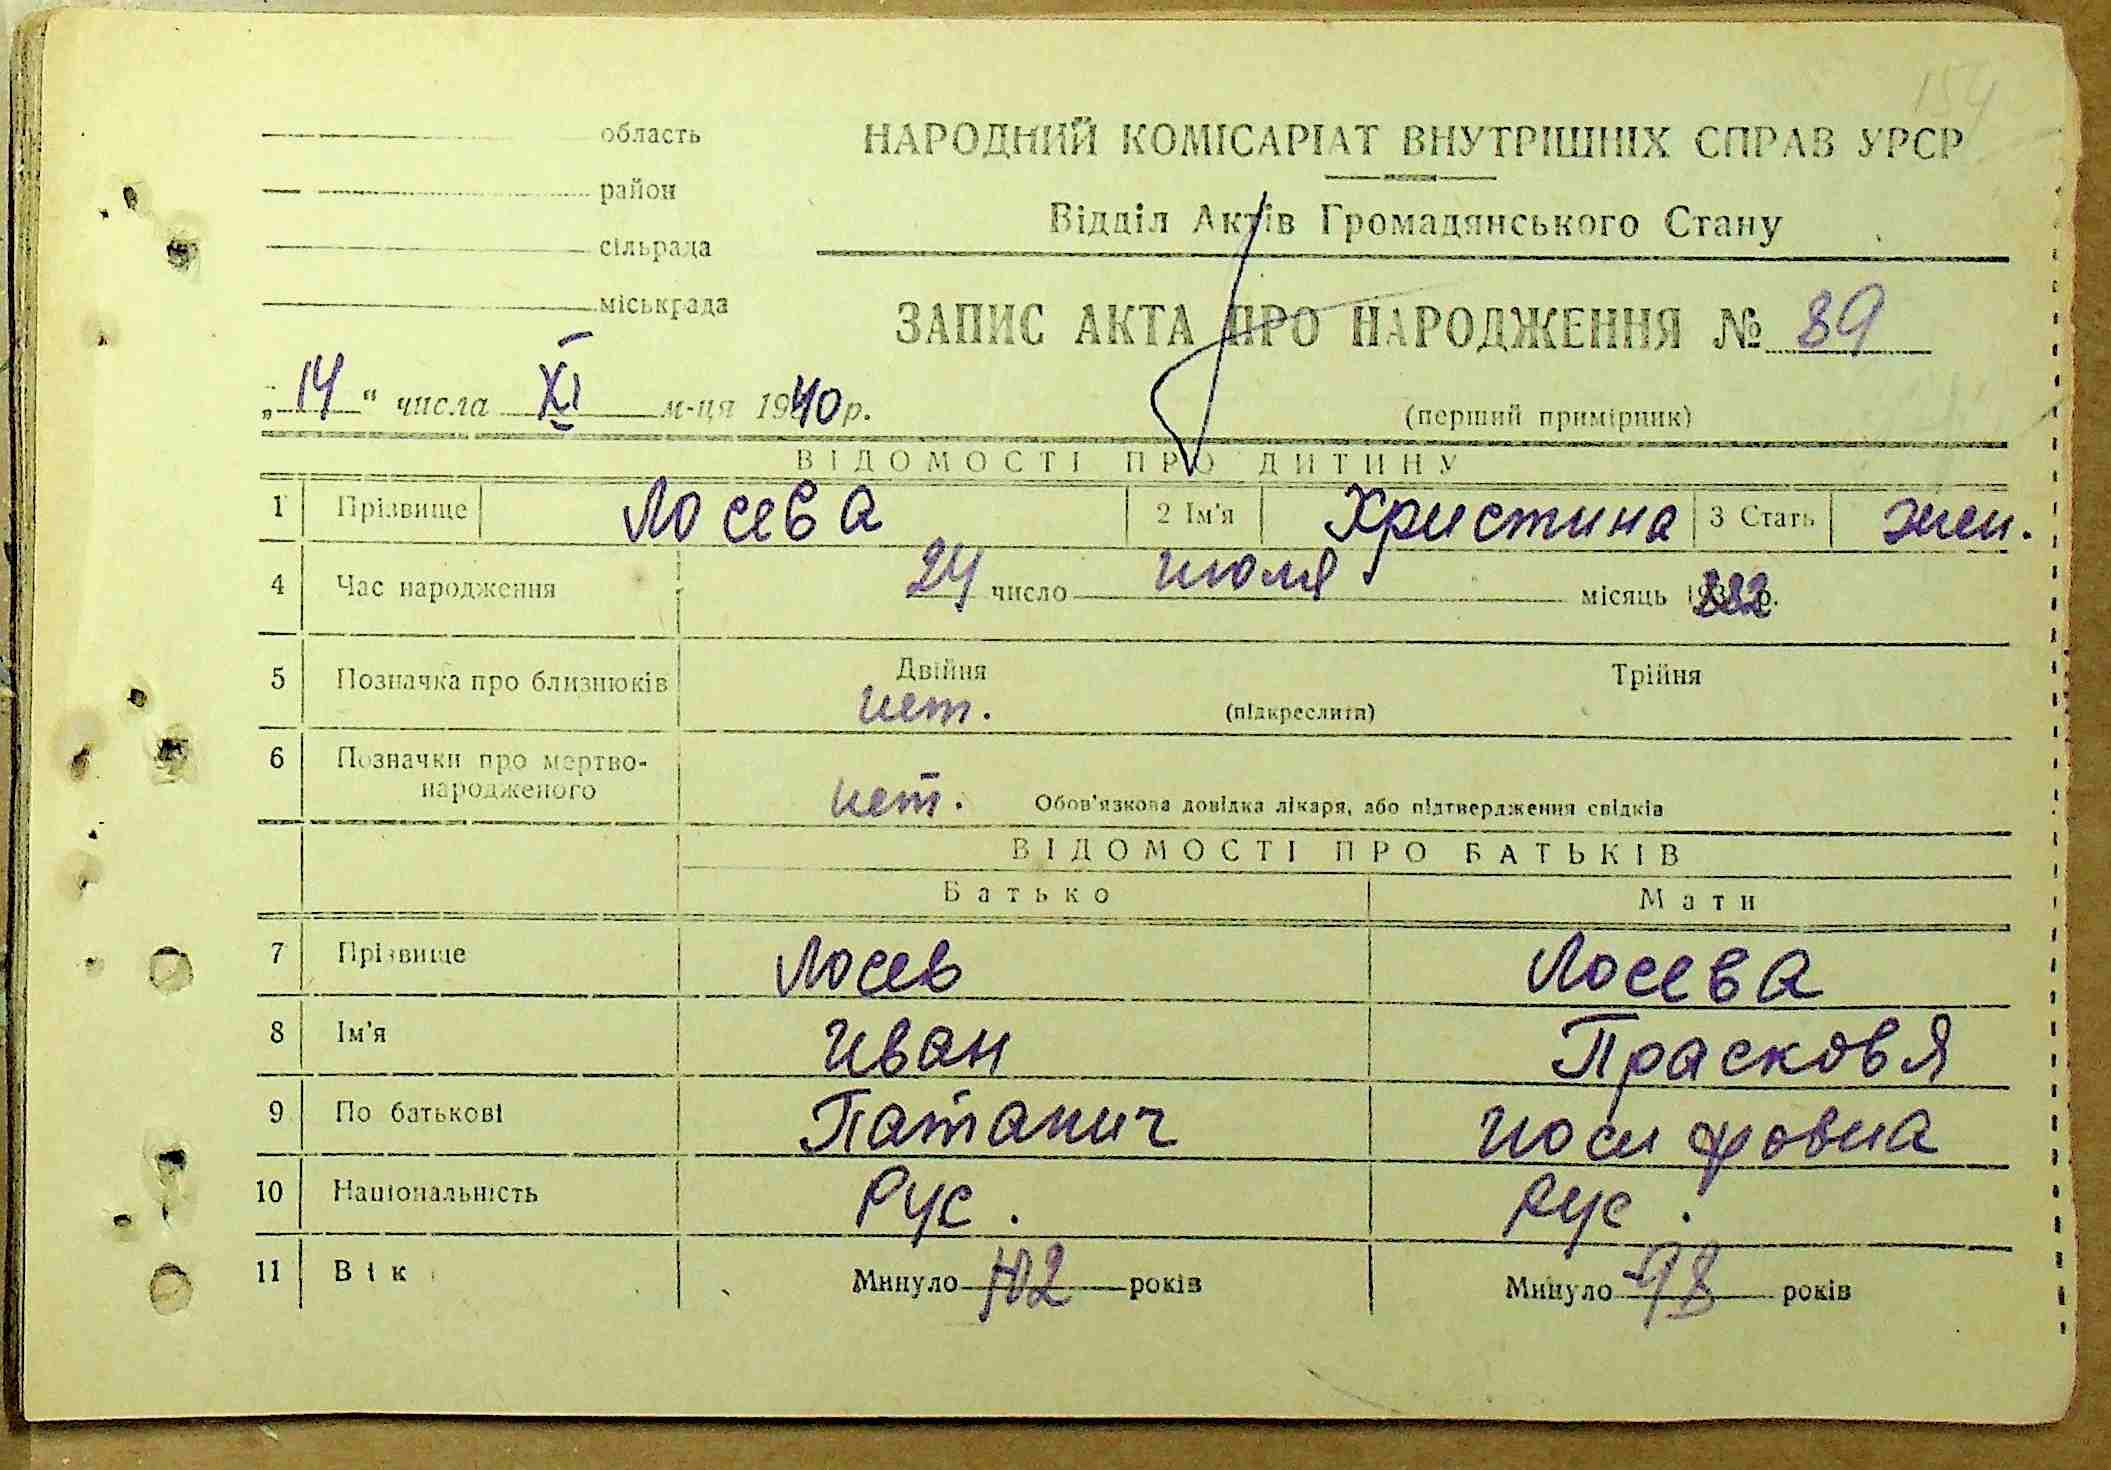 154
область
район
сільрада
міськрада
НАРОДНИЙ КОМІСАРІАТ ВНУТРІШНІХ СПРАВ УРСР
Відділ Актів Громадянського Стану
ЗАПИС АКТА ПРО НАРОДЖЕННЯ № 89
„14" числа XI м-ця 1940 р.
(перший примірник)
ВІДОМОСТІ ПРО ДИТИНУ
1 Прізвище Лосева 2 Ім'я Христина 3 Стать жен.
4 Час народження 24 число июля місяць р.
5 Позначка про близнюків Двійня Трійня
нет. (підкреслити)
6 Позначки про мертво-
народженого нет. Обов'язкова довідка лікаря, або підтвердження свідків
ВІДОМОСТІ ПРО БАТЬКІВ
Батько Мати
7 Прізвище Лосев Лосева
8 Ім'я Иван Прасковя
9 По батькові Патапич Иосифовна
10 Національність Рус. Рус.
11 Вік Минуло років Минуло років